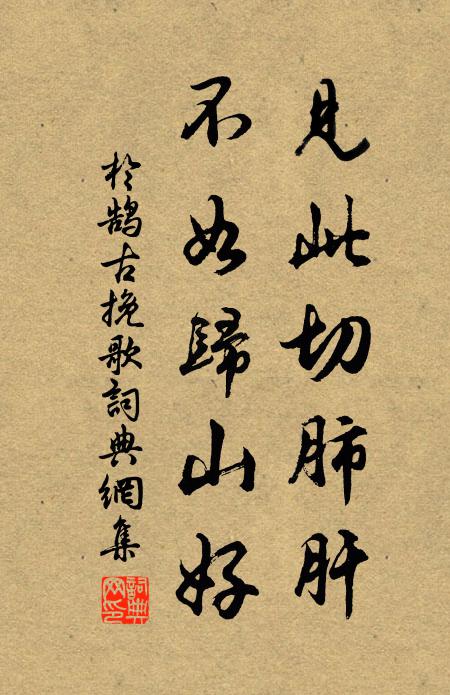 見此切肺肝
不如歸山好
於鵠古挽歌詞典網集
詞典網印